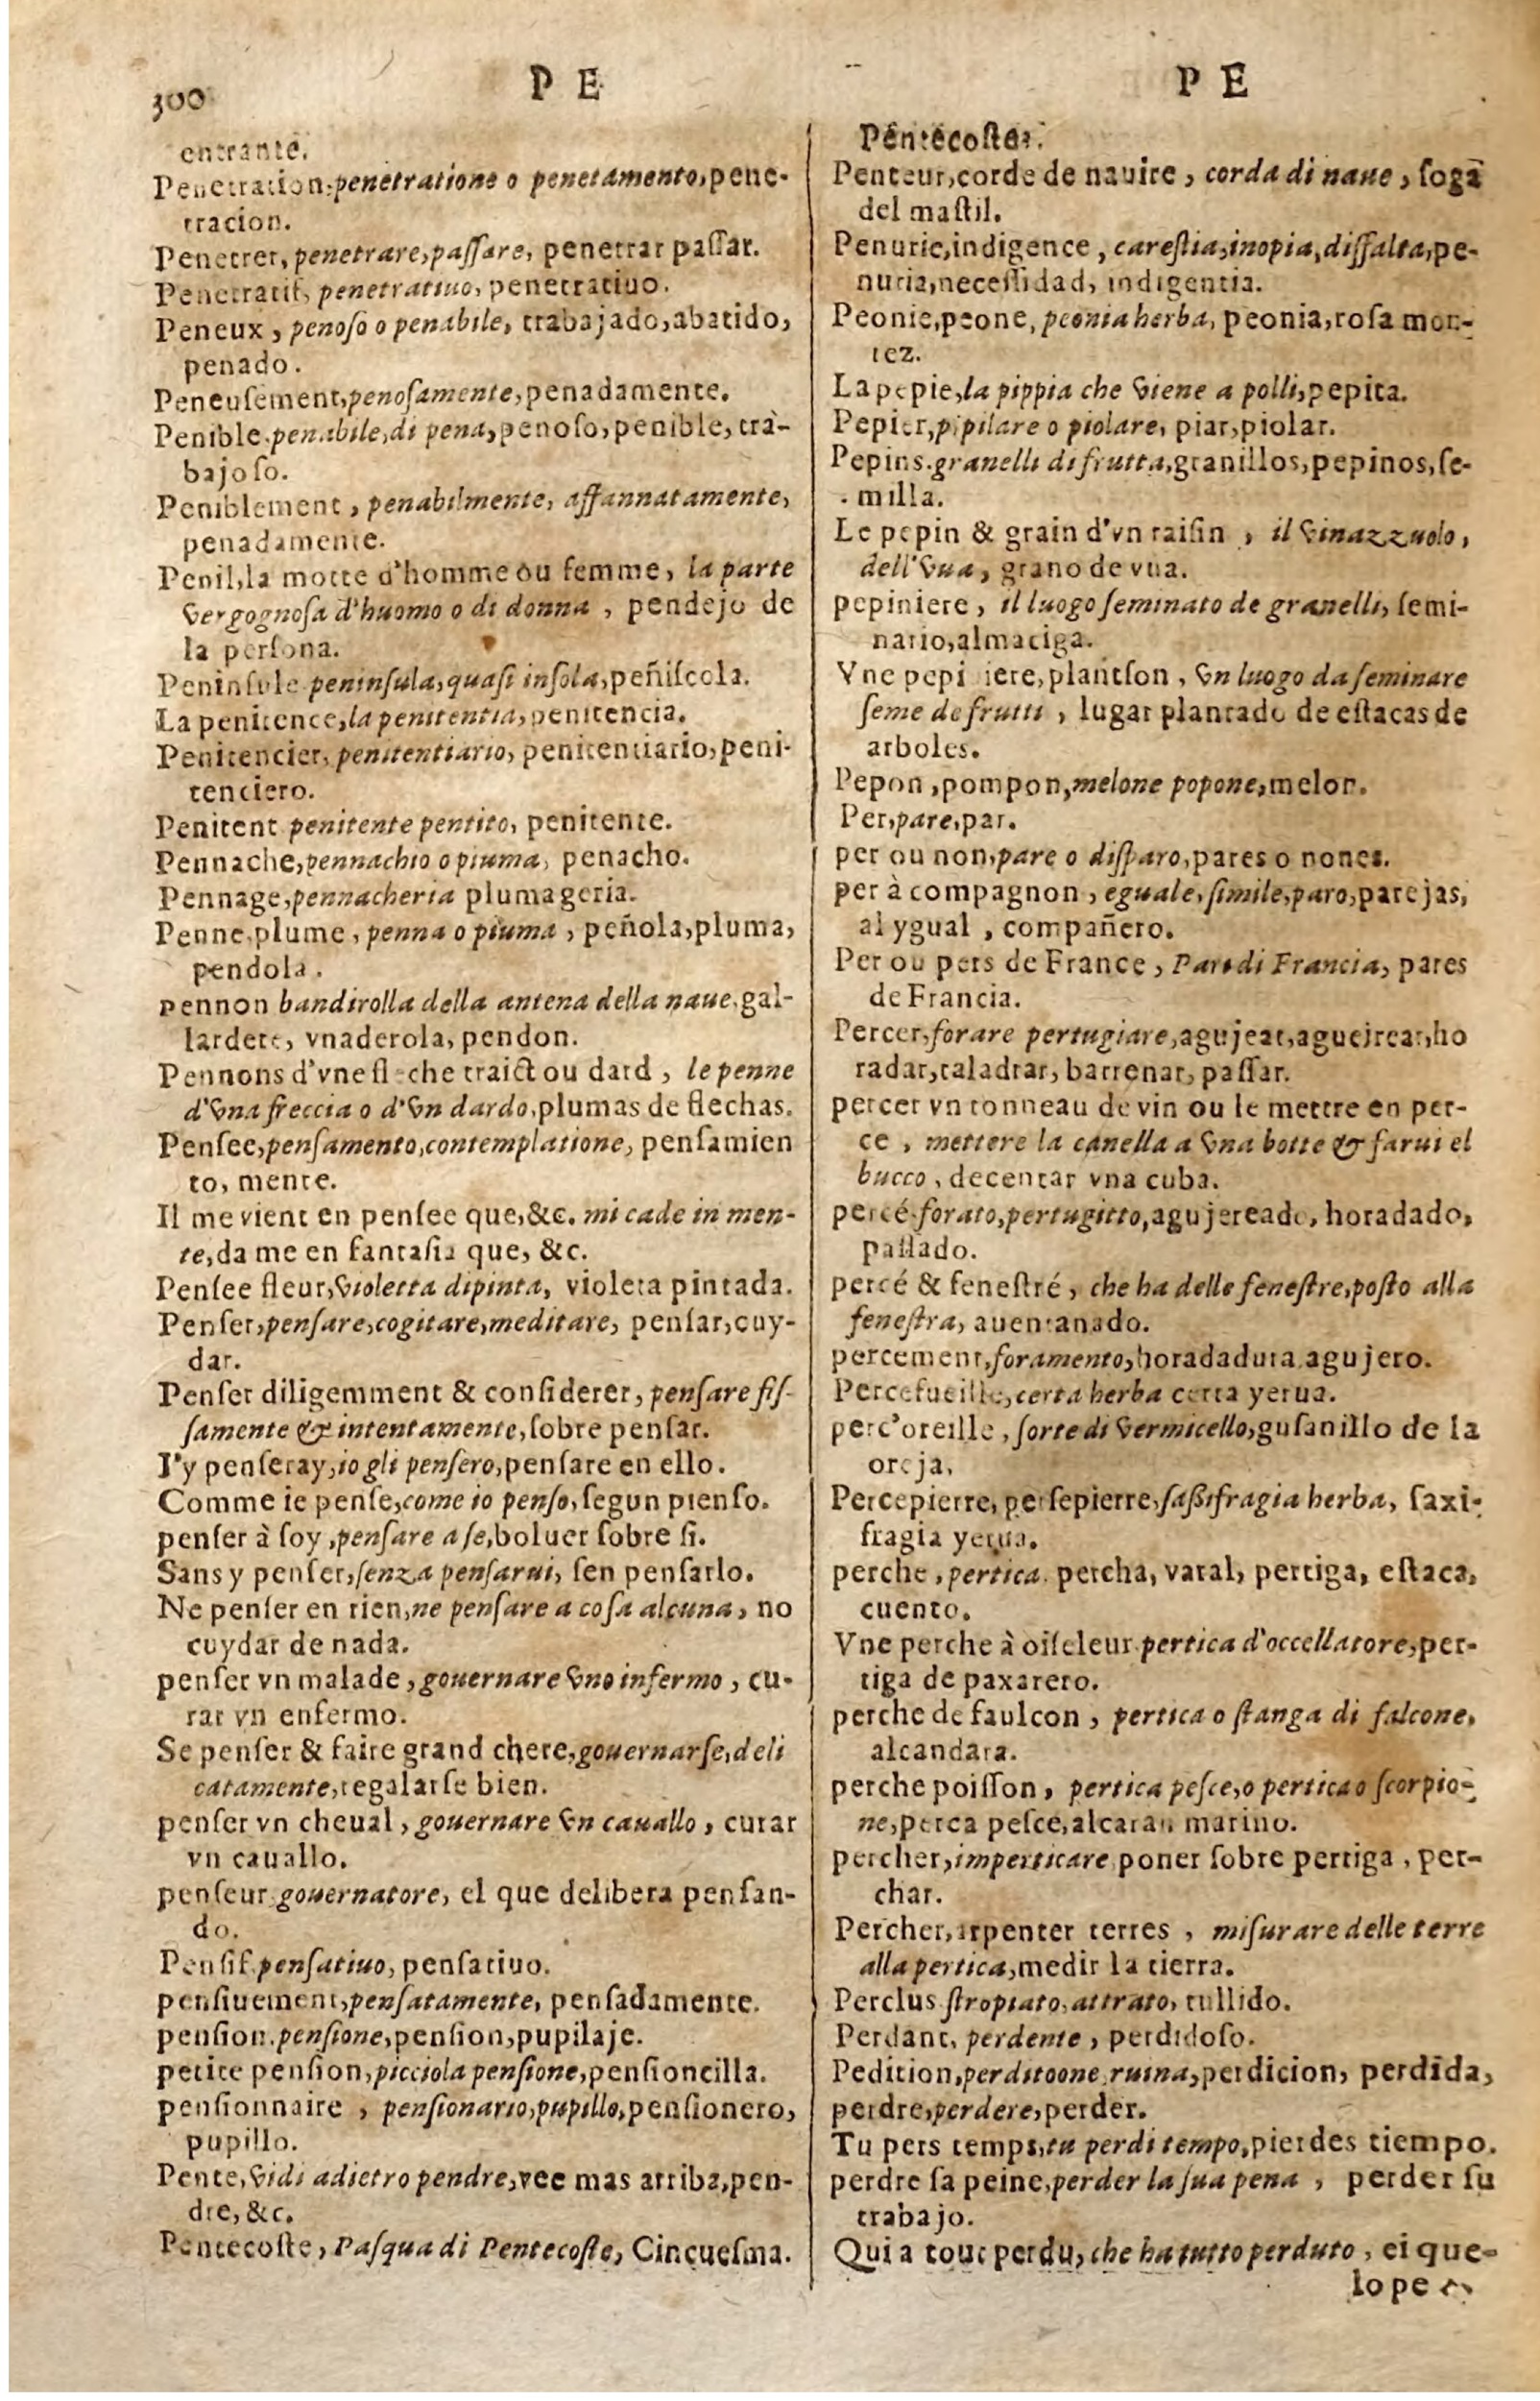 300
P E
entrante.
Penetration, penetratione o penetamento, pene-
tracion.
Penetrer, penetrare, paſſare, penetrar paſſar.
Penetratif, penetratiuo, penetratiuo.
Peneux, penoſo o penabile, trabajado, abatido,
penado.
Peneuſement, penoſamente, penadamente.
Penible. penabile, di pena, penoſo, penible, tra-
bajoſo.
Peniblement, penabilmente, affannatamente,
penadamente.
Penil, la motte d'homme ou femme, la parte
vergognoſa d'huomo o di donna, pendejo de
la perſona.
Peninſule peninſula, quaſi inſola, peñiſcola.
La penitence, la penitentia, penitencia.
Penitencier, penitentiario, penitentiario, peni-
tenciero.
Penitent penitente pentito, penitente.
Pennache, pennachio o piuma, penacho.
Pennage, pennacheria plumageria.
Penne, plume, penna o piuma, peñola, pluma,
pendola.
pennon bandirolla della antena della naue. gal-
lardete, vnaderola, pendon.
Pennons d'vne fleche traict ou dard, le penne
d'vna freccia o d'vn dardo, plumas de flechas.
Penſee, penſamento, contemplatione, penſamien
to, mente.
Il me vient en penſee que, &c. mi cade in men-
te, da me en fantaſia que, &c.
Penſee fleur, violetta dipinta, violeta pintada.
Penſer, penſare, cogitare, meditare, penſar, cuy-
dar.
Penſer diligemment & conſiderer, penſare fiſ-
ſamente & intentamente, ſobre penſar.
I'y penſeray, io gli penſero, penſare en ello.
Comme ie penſe, come io penſo, ſegun pienſo.
penſer à ſoy, penſare a ſe, boluer ſobre ſi.
Sans y penſer, ſenza penſarui, ſen penſarlo.
Ne penſer en rien, ne penſare a coſa alcuna, no
cuydar de nada.
penſer vn malade, gouernare vno infermo, cu-
rar vn enfermo.
Se penſer & faire grand chere, gouernarſe, deli
catamente, regalarſe bien.
penſer vn cheual, gouernare vn cauallo, curar
vn cauallo.
penſeur gouernatore, el que delibera penſan-
do.
Penſif. penſatiuo, penſatiuo.
penſiuement, penſatamente, penſadamente.
penſion. penſione, penſion, pupilaje.
petite penſion, picciola penſione, penſioncilla.
penſionnaire, penſionario, pupillo, penſionero,
pupillo.
Pente, vidi adietro pendre, vee mas arriba, pen-
dre, &c.
Pentecoſte, Paſqua di Pentecoſte, Cinqueſma.
P E
Pentecoſtes.
Penteur, corde de nauire, corda di naue, ſoga
del maſtil.
Penurie, indigence, careſtia, inopia, diffalta, pe-
nuria, neceſſidad, indigentia.
Peonie, peone, peonia herba, peonia, roſa mon-
tez.
La pepie, la pippia che viene a polli, pepita.
Pepier, pipilare o piolare, piar, piolar.
Pepins. granelli di frutta, granillos, pepinos, ſe-
milla.
Le pepin & grain d'vn raiſin, il vinazzuolo,
dell'vua, grano de vua.
pepiniere, il luogo ſeminato de granelli, ſemi-
nario, almaciga.
Vne pepi iere, plantſon, vn luogo da ſeminare
ſeme de frutti, lugar plantado de eſtacas de
arboles.
Pepon, pompon, melone popone, melon.
Per, pare, par.
per ou non, pare o diſparo, pares o nones.
per à compagnon, eguale, ſimile, paro, parejas,
al ygual, compañero.
Per ou pers de France, Pari di Francia, pares
de Francia.
Percer, forare pertugiare, agujear, aguejrear, ho
radar, taladrar, barrenar, paſſar.
percer vn tonneau de vin ou le mettre en per-
ce, mettere la canella a vna botte & farui el
bucco, decentar vna cuba.
percé. forato, pertugitto, agujereado, horadado,
paſſado.
percé & feneſtré, che ha delle feneſtre, poſto alla
feneſtra, auentanado.
percement, foramento, horadadura agujero.
Percefueille, certa herba certa yerua.
perc'oreille, ſorte di vermicello, guſanillo de la
oreja,
Percepierre, perſepierre, ſaſſifragia herba, ſaxi-
fragia yerua.
perche, pertica. percha, varal, pertiga, eſtaca,
cuento.
Vne perche à oiſeleur. pertica d'occellatore, per-
tiga de paxarero.
perche de faulcon, pertica o ſtanga di falcone,
alcandara.
perche poiſſon, pertica peſce, o pertica o ſcorpio-
ne, perca peſce, alcaran marino.
percher, imperticare poner ſobre pertiga, per-
char.
Percher, arpenter terres, miſurare delle terre
alla pertica, medir la tierra.
Perclus ſtropiato, attrato, tullido.
Perdant, perdente, perdidoſo.
Pedition, perditoone, ruina, perdicion, perdida,
perdre, perdere, perder.
Tu pers temps, tu perdi tempo, pierdes tiempo.
perdre ſa peine, perder la ſua pena, perder ſu
trabajo.
Qui a tout perdu, che ha tutto perduto, ei que-
lo pe